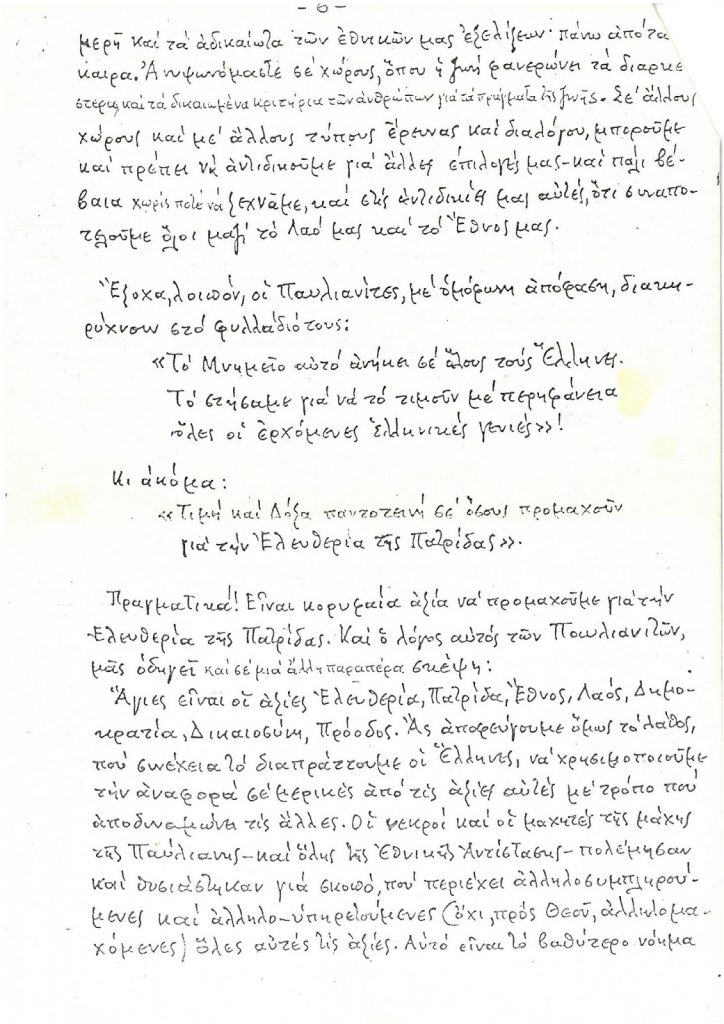 - 6 -
μερη καί τά ἀδικαίωτα τῶν ἐθνικῶν μας ἐξελίξεων· πάνω ἀπό τά
καιρα. Ἀνυψωνόμαστε σέ χώρους, ὅπου ἡ ζωή φανερώνει τά διαρκέ
στερα, καί τά δικαιωμένα κριτήρια τῶν ἀνθρώπων γιά τά πράγματα τῆς ζωῆς. Σέ ἄλλους
χώρους καί μέ ἄλλους τύπους ἔρευνας καί διαλόγου, μποροῦμε
καί πρέπει νά ἀντιδικοῦμε γιά ἄλλες ἐπιλογές μας - καί πάλι βέ-
βαια χωρίς ποτέ νά ξεχνᾶμε, καί στίς ἀντιδικίες μας αὐτές, ὅτι συναπο-
τελοῦμε ὅλοι μαζί τό Λαό μας καί τό Ἔθνος μας.
Ἔξοχα, λοιπόν, οἱ Παυλιανίτες, μέ ὁμόφωνη ἀπόφαση, διακη-
ρύχνουν στό φυλλάδιό τους:
«Τό Μνημεῖο αὐτό ἀνήκει σέ ὅλους τούς Ἕλληνες.
Τό στήσαμε γιά νά τό τιμοῦν μέ περηφάνεια
ὅλες οἱ ἐρχόμενες ἑλληνικές γενιές»!
Κι ἀκόμα:
«Τιμή καί Δόξα παντοτεινή σέ ὅσους προμαχοῦν
γιά τήν Ἐλευθερία τῆς Πατρίδας».
Πραγματικά! Εἶναι κορυφαία ἀξία νά προμαχοῦμε γιά τήν
Ἐλευθερία τῆς Πατρίδας. Καί ὁ λόγος αὐτός τῶν Παυλιανιτῶν,
μᾶς ὁδηγεῖ καί σέ μιά ἄλλη παραπέρα σκέψη:
Ἅγιες εἶναι οἱ ἀξίες Ἐλευθερία, Πατρίδα, Ἔθνος, Λαός, Δημο-
κρατία, Δικαιοσύνη, Πρόοδος. Ἄς ἀποφεύγουμε ὅμως τό λάθος,
πού συνέχεια τό διαπράττουμε οἱ Ἕλληνες, νά χρησιμοποιοῦμε
τήν ἀναφορά σέ μερικές ἀπό τίς ἀξίες αὐτές μέ τρόπο πού
ἀποδυναμώνει τίς ἄλλες. Οἱ νεκροί καί οἱ μαχητές τῆς μάχης
τῆς Παύλιανης - καί ὅλης τῆς Ἐθνικῆς Ἀντίστασης - πολέμησαν
καί θυσιάστηκαν γιά σκοπό, πού περιέχει ἀλληλοσυμπληρού-
μενες καί ἀλληλο-υπηρετούμενες (ὄχι, πρός Θεοῦ, ἀλληλομα-
χόμενες) ὅλες αὐτές τίς ἀξίες. Αὐτό εἶναι τό βαθύτερο νόημα